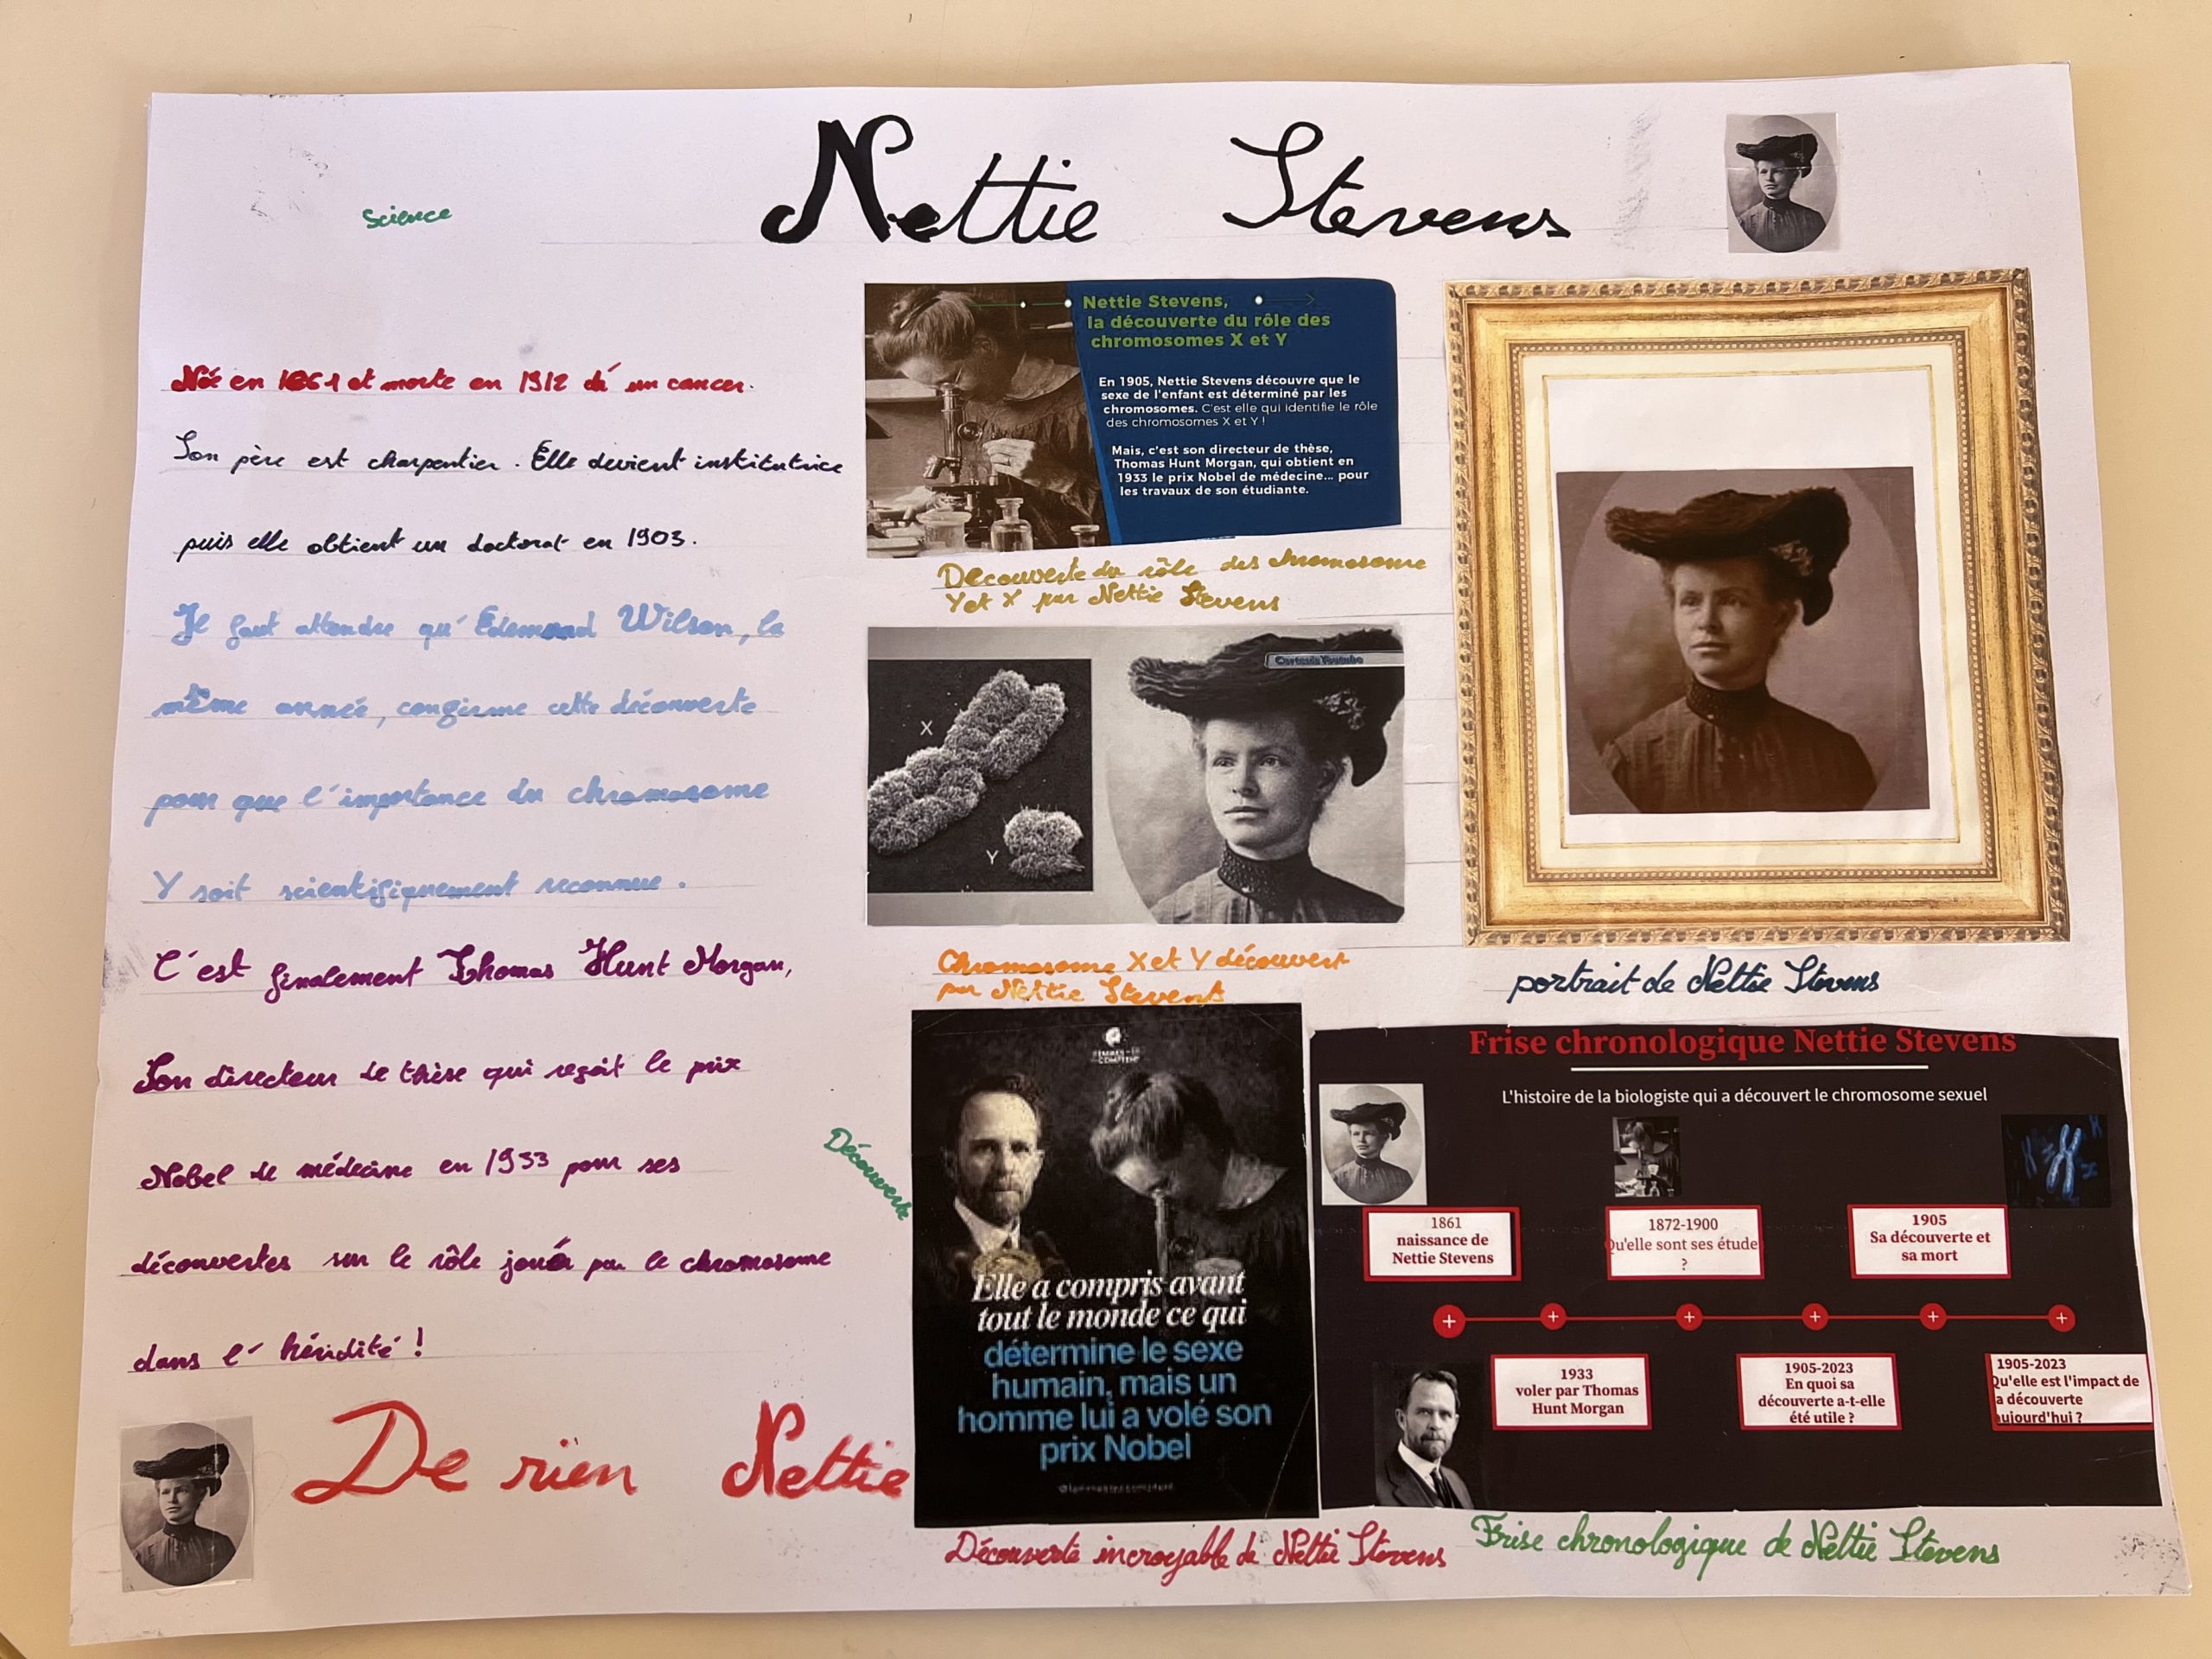 Nettie Stevens
Science
Née en 1861 et morte en 1912 dû un cancer.
Son père est charpentier. Elle devient institutrice
puis elle obtient un doctorat en 1903.
Il faut attendre qu'Edemond Wilson, la
même année, confirme cette découverte
pour que l'importance du chromosome
Y soit scientifiquement reconnue.
C'est finalement Thomas Hunt Morgan,
Son directeur de thèse qui reçoit le prix
Nobel de médecine en 1933 pour ses
découvertes sur le rôle joué par le chromosome
dans l'héridité !
De rien Nettie
Découverte
Nettie Stevens,
la découverte du rôle des
chromosomes X et Y
En 1905, Nettie Stevens découvre que le
sexe de l'enfant est déterminé par les
chromosomes. C'est elle qui identifie le rôle
des chromosomes X et Y !
Mais, c'est son directeur de thèse,
Thomas Hunt Morgan, qui obtient en
1933 le prix Nobel de médecine... pour
les travaux de son étudiante.
Découverte du rôle des chromosome
Y et X par Nettie Stevens
X
Y
Chromosome X et Y découvert
par Nettie Stevens
Elle a compris avant
tout le monde ce qui
détermine le sexe
humain, mais un
homme lui a volé son
prix Nobel
Découverte incroyable de Nettie Stevens
portrait de Nettie Stevens
Frise chronologique Nettie Stevens
L'histoire de la biologiste qui a découvert le chromosome sexuel
1861
naissance de
Nettie Stevens
1872-1900
Qu'elle sont ses étude
?
1905
Sa découverte et
sa mort
1933
voler par Thomas
Hunt Morgan
1905-2023
En quoi sa
découverte a-t-elle
été utile ?
1905-2023
Qu'elle est l'impact de
a découverte
aujourd'hui ?
Frise chronologique de Nettie Stevens